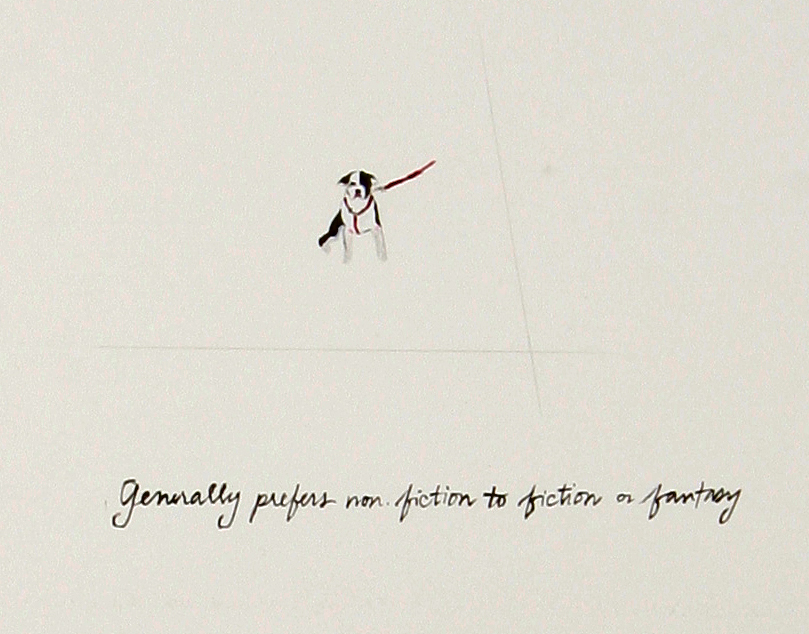 Generally prefers non-fiction to fiction or fantasy